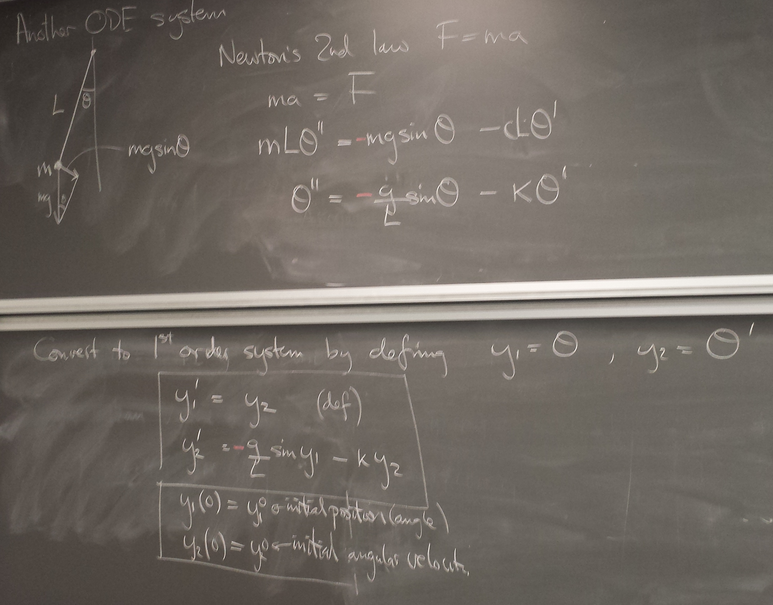 Another ODE system
Newton's 2nd law F=ma
ma = F
mLθ'' = -mg sinθ - cLθ'
θ'' = -g/L sinθ - Kθ'
L
θ
m
mg sinθ
mg
θ
Convert to 1st order system by defining y₁ = θ , y₂ = θ'
y₁' = y₂ (def)
y₂' = -g/L sin y₁ - K y₂
y₁(0) = y₁⁰ ← initial position (angle)
y₂(0) = y₂⁰ ← initial angular velocity